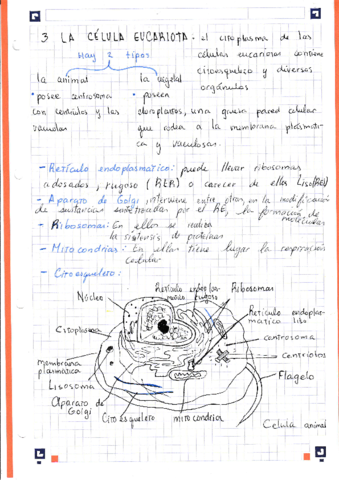 3 LA CÉLULA EUCARIOTA · el citoplasma de las
Hay 2 tipos
células eucariotas contiene
citoesqueleto y diversos
orgánulos
la animal
· posee centrosoma
con centriolos y las
vacuolas
la vegetal
· poseen
cloroplastos, una gruesa pared celular
que rodea a la membrana plásmati-
ca y vacuolas.
- Retículo endoplasmatico: puede llevar ribosomas
adosados, rugoso (RER) o carecer de ellos Liso (REL)
- Aparato de Golgi, interviene entre otras, en la modificación
de sustancias sintetizadas por el RE, la formación de
moleculas
- Ribosomas: En ellos se realiza
la síntesis de proteinas
- Mitocondrias: En ellas tiene lugar la respiración
celular
- Citoesqueleto:
Núcleo
Retículo endoplas-
matico rugoso
Ribosomas
Retículo endoplas-
matico liso
Citoplasma
centrosoma
centriolos
membrana
plasmática
Flagelo
Lisosoma
Aparato de
Golgi
Citoesqueleto
mitocondria
Celula animal